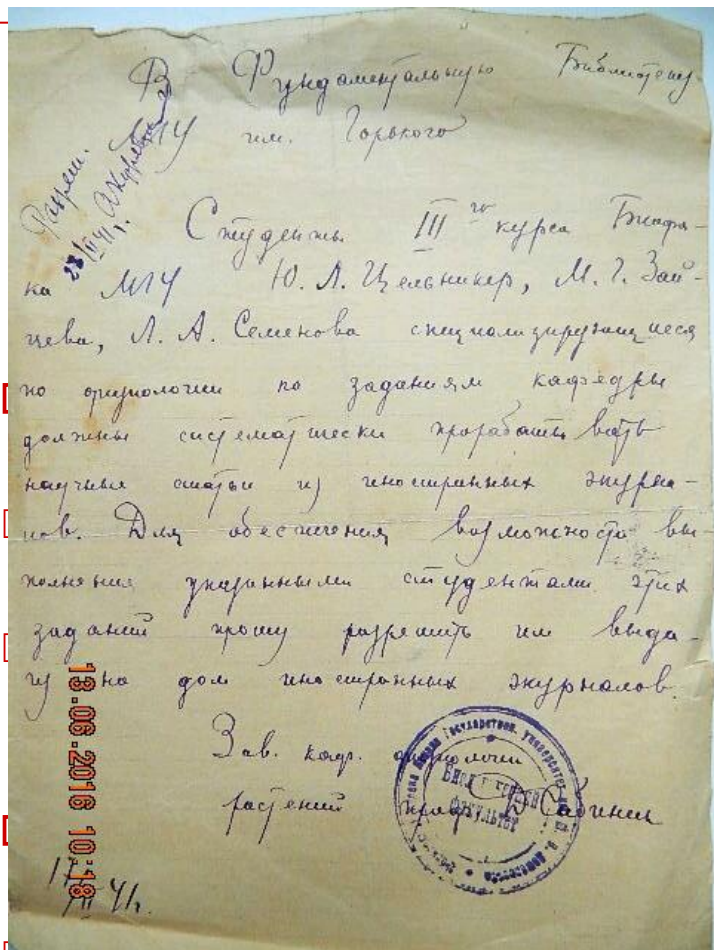 В Фундаментальную Библиотеку
МГУ им. Горького
Разреш.
28/II 41г.
Студенты III го курса Биофа-
ка МГУ Ю. Л. Цельникер, М. Г. Зай-
цева, Л. А. Семенова специализирующиеся
по физиологии по заданиям кафедры
должны систематически прорабатывать
научные статьи из иностранных журна-
лов. Для обеспечения возможности вы-
полнения указанными студентами этих
заданий прошу разрешить им выда-
чу на дом иностранных журналов.
Зав. каф. физиологии
растений проф. Д Сабинин
17/II 41г.
Государствен. Университет
Биологический
факультет
13.06.2016 10:18